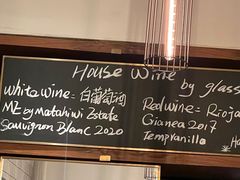 House Wine
by glass
white wine = 白葡萄酒
ME by Matahiwi Estate
Sauvignon Blanc 2020
Red wine = Rioja
Gianea 2017
Tempranillo